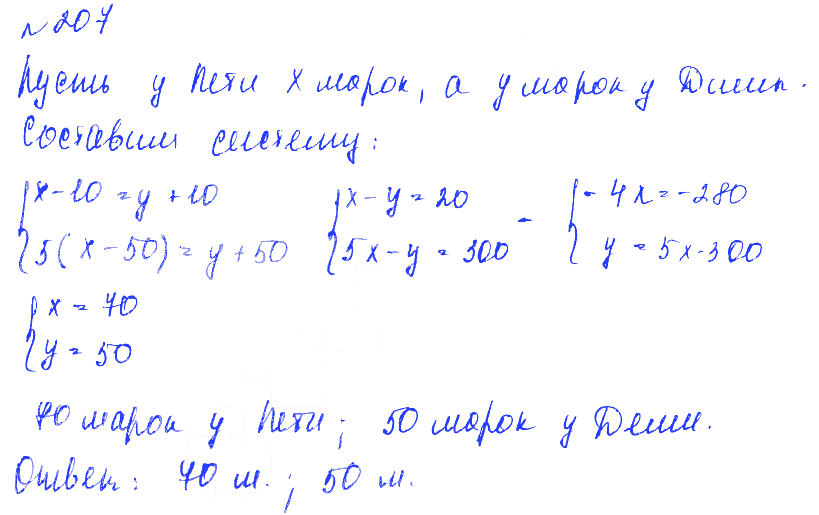 №207
Пусть у Пети x марок, а y марок у Димы.
Составим систему:
{x-10=y+10 {x-y=20 - {-4x=-280
{5(x-50)=y+50 {5x-y=300 {y=5x-300
{x=70
{y=50
70 марок у Пети; 50 марок у Димы.
Ответ: 70 м.; 50 м.